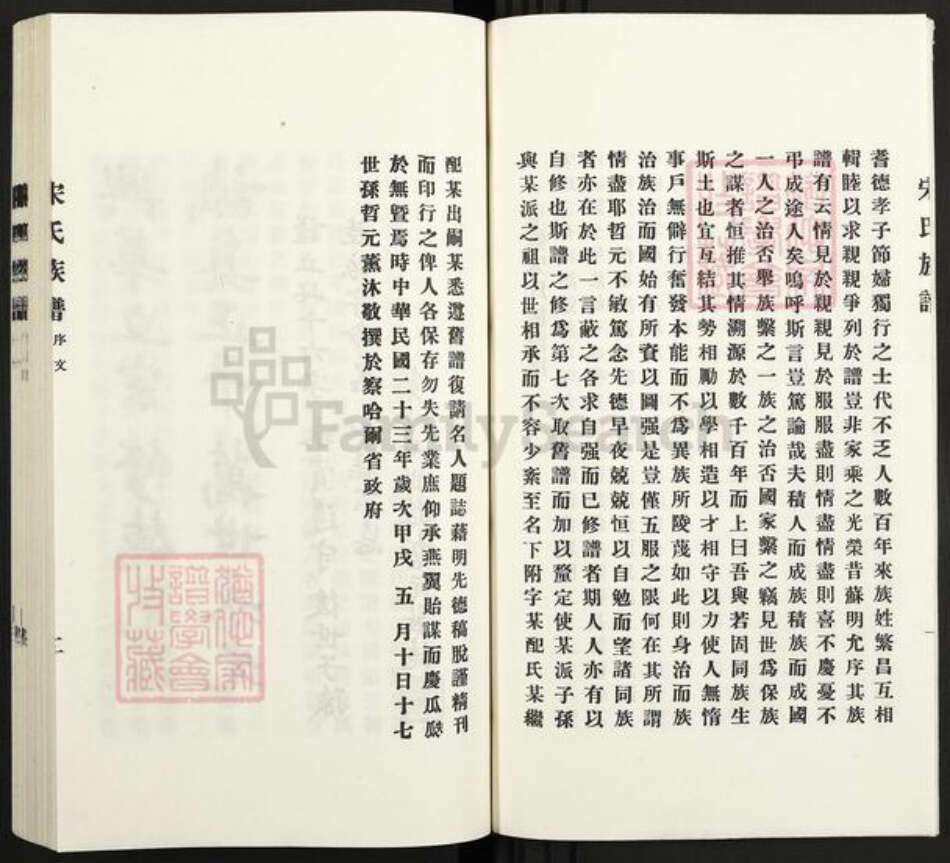 宋氏族譜
耆德孝子節婦獨行之士代不乏人數百年來族姓繁昌互相
輯睦以求親親爭列於譜豈非家乘之光榮昔蘇明允序其族
譜有云情見於親親見於服服盡則情盡情盡則喜不慶憂不
弔成途人矣嗚呼斯言豈篤論哉夫積人而成族積族而成國
一人之治否舉族繫之一族之治否國家繫之竊見世爲保族
之謀者恒推其情溯源於數千百年而上曰吾與若固同族生
斯土也宜互結其勢相勵以學相造以才相守以力使人無惰
事戶無僻行奮發本能而不爲異族所陵蔑如此則身治而族
治族治而國始有所資以圖强是豈僅五服之限何在其所謂
情盡耶哲元不敏篤念先德早夜兢兢恒以自勉而望諸同族
者亦在於此一言蔽之各求自强而已修譜者期人人亦有以
自修也斯譜之修爲第七次取舊譜而加以釐定使某派子孫
與某派之祖以世相承而不容少紊至名下附字某配氏某繼
配某出嗣某悉遵舊譜復請名人題誌藉明先德稿脫謹精刊
而印行之俾人各保存勿失先業庶仰承燕翼貽謀而慶瓜瓞
於無曁焉時中華民國二十三年歲次甲戌 五 月十日十七
世孫哲元薰沐敬撰於察哈爾省政府
宋氏族譜 序文 二
猶他家
譜學會
收藏
FamilySearch